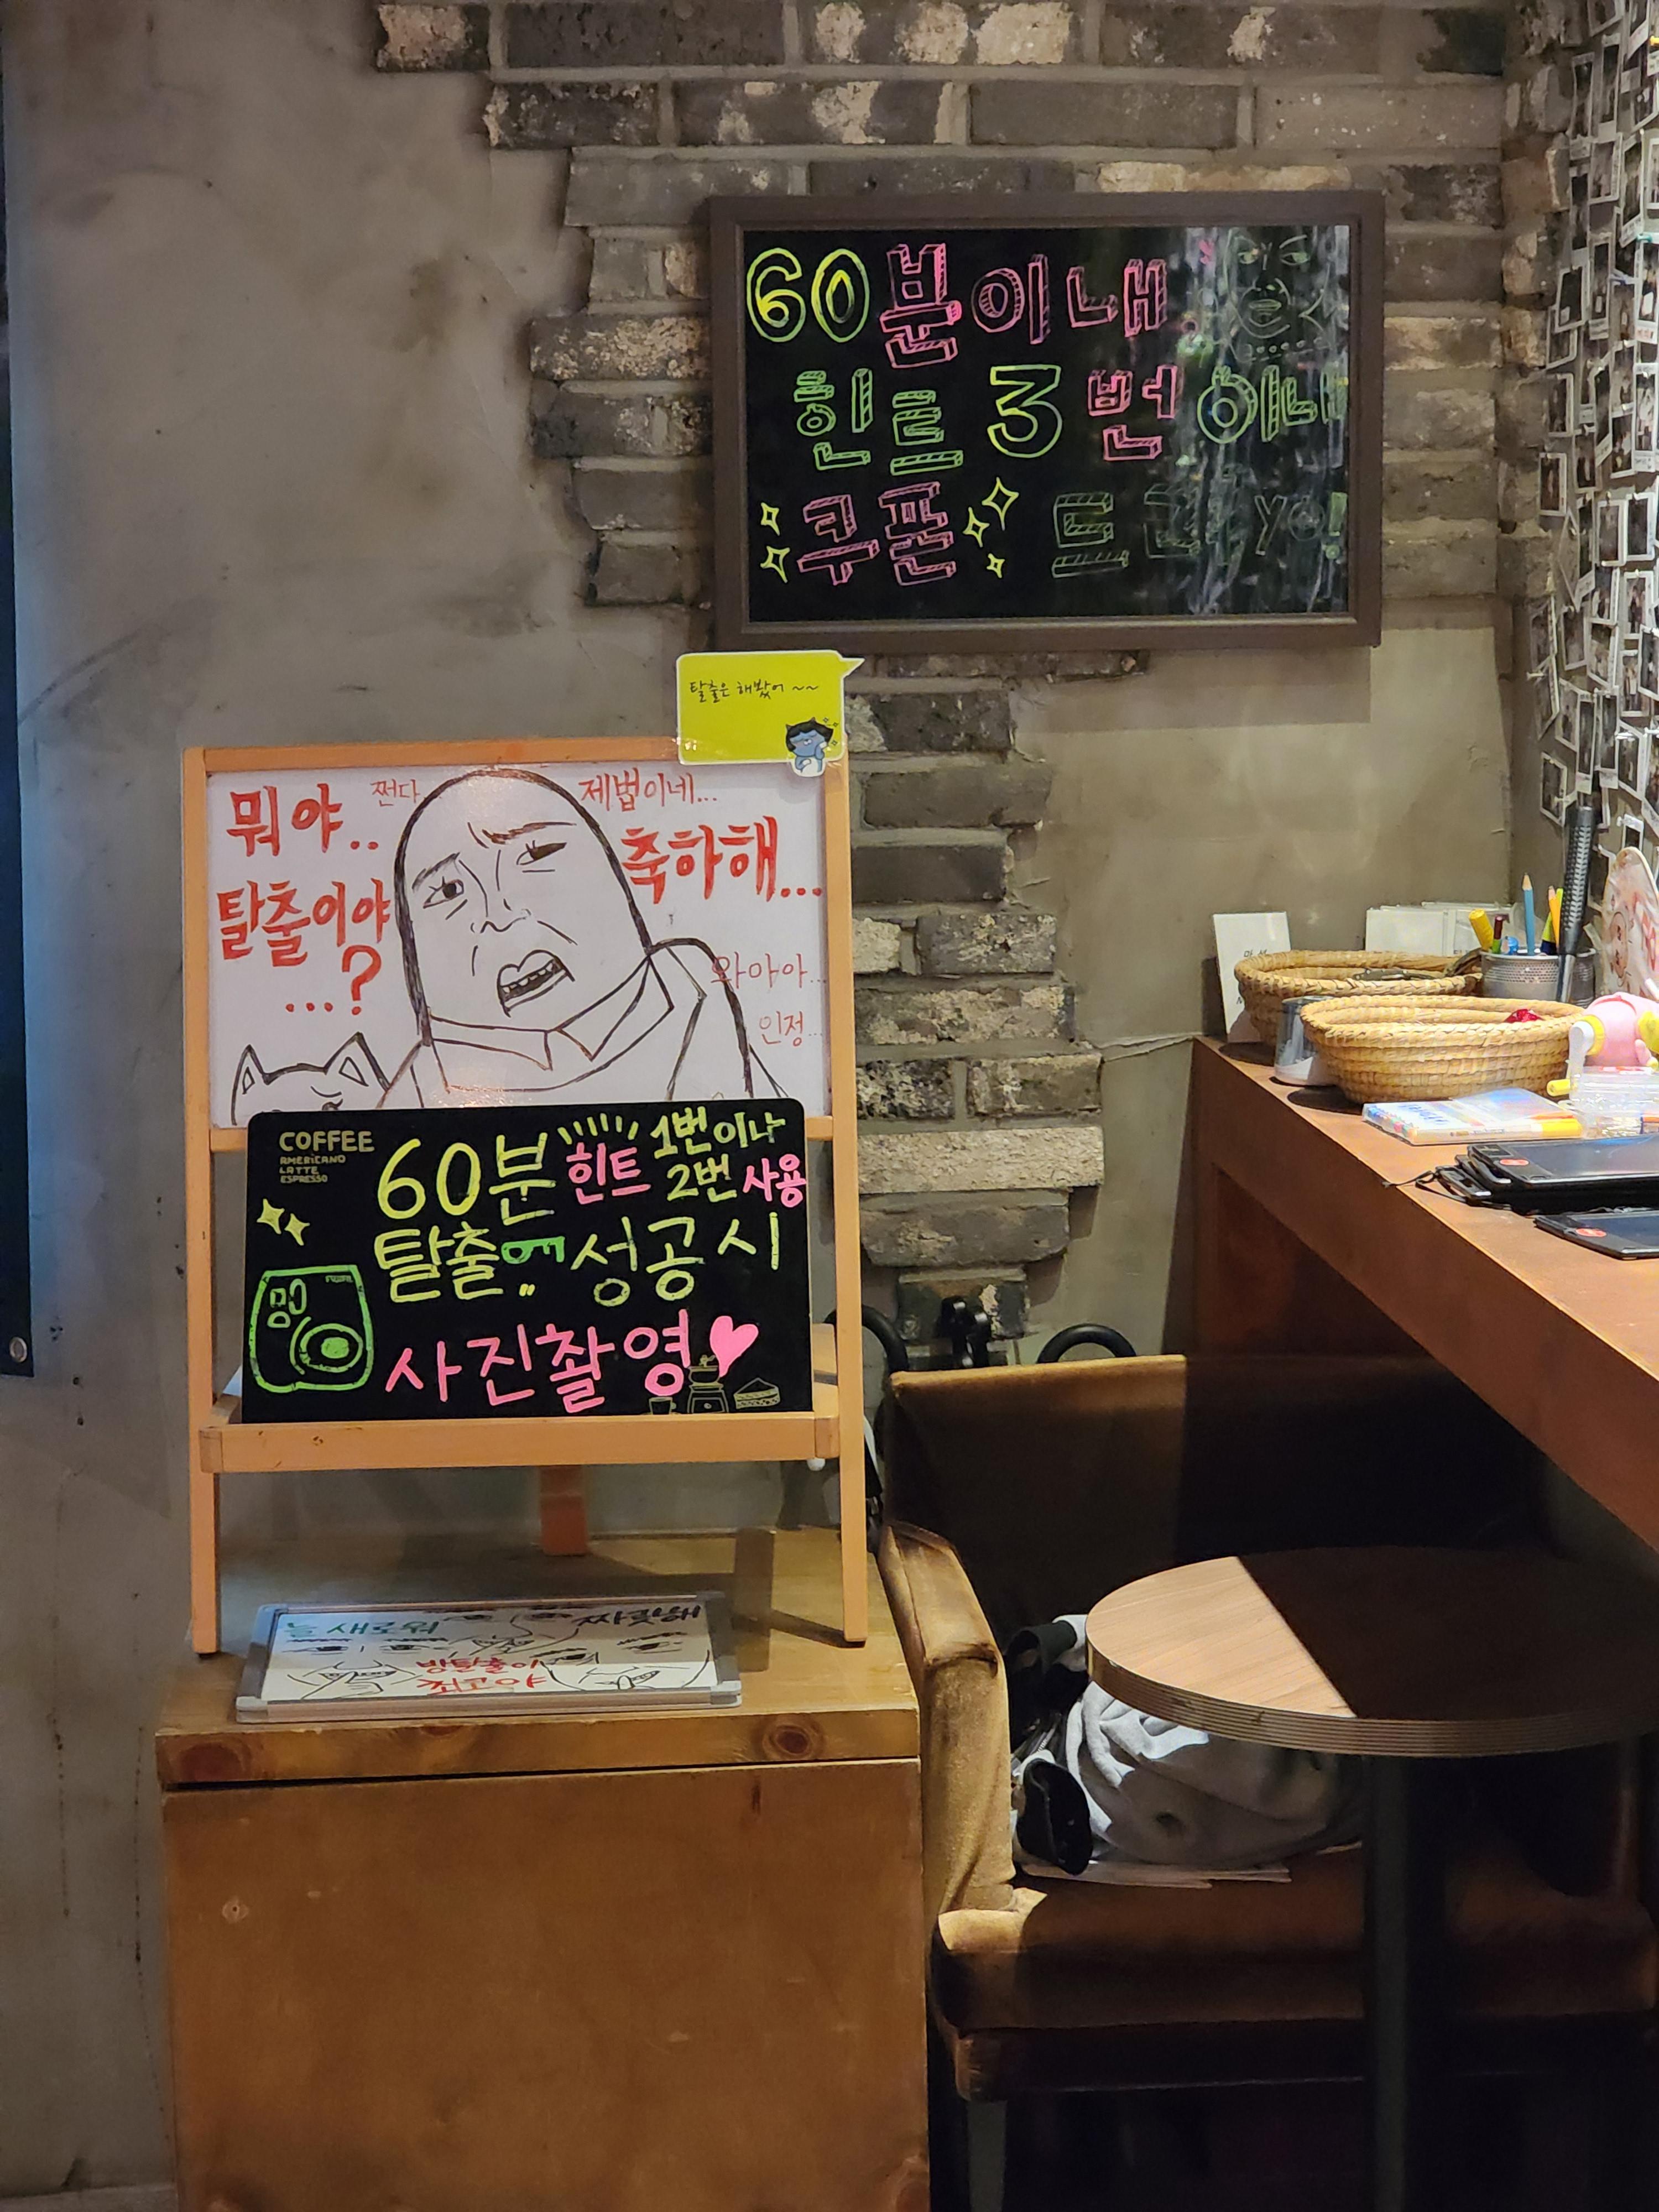 60분이내
힌트 3번 이내
쿠폰 드려yo!
탈출은 해봤어 ~~
뭐야..
쩐다
탈출이야
...?
제법이네...
축하해...
와아아...
인정...
COFFEE
AMERICANO
LATTE
ESPRESSO
60분 힌트 1번이나 2번 사용
탈출 성공시
사진촬영
늘 새로워
짜릿해
방탈출이
최고야